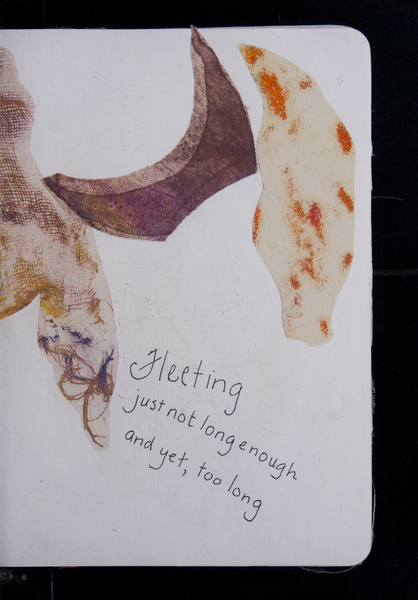 Fleeting
just not long enough
and yet, too long